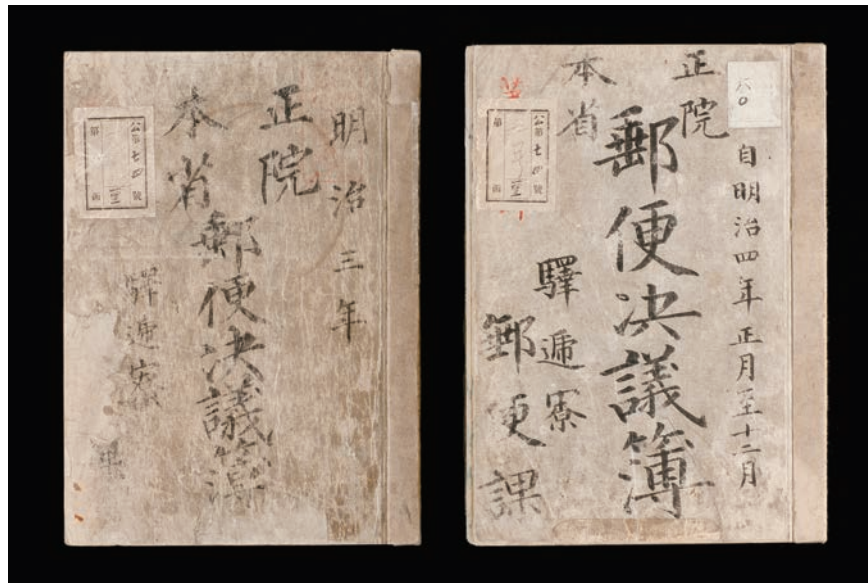 明治三年
正院
本省
郵便决議簿
驛逓寮
公第七四號
第
自明治四年正月至十二月
正院
本省
郵便决議簿
驛遞寮
郵便課
公第七四號
第